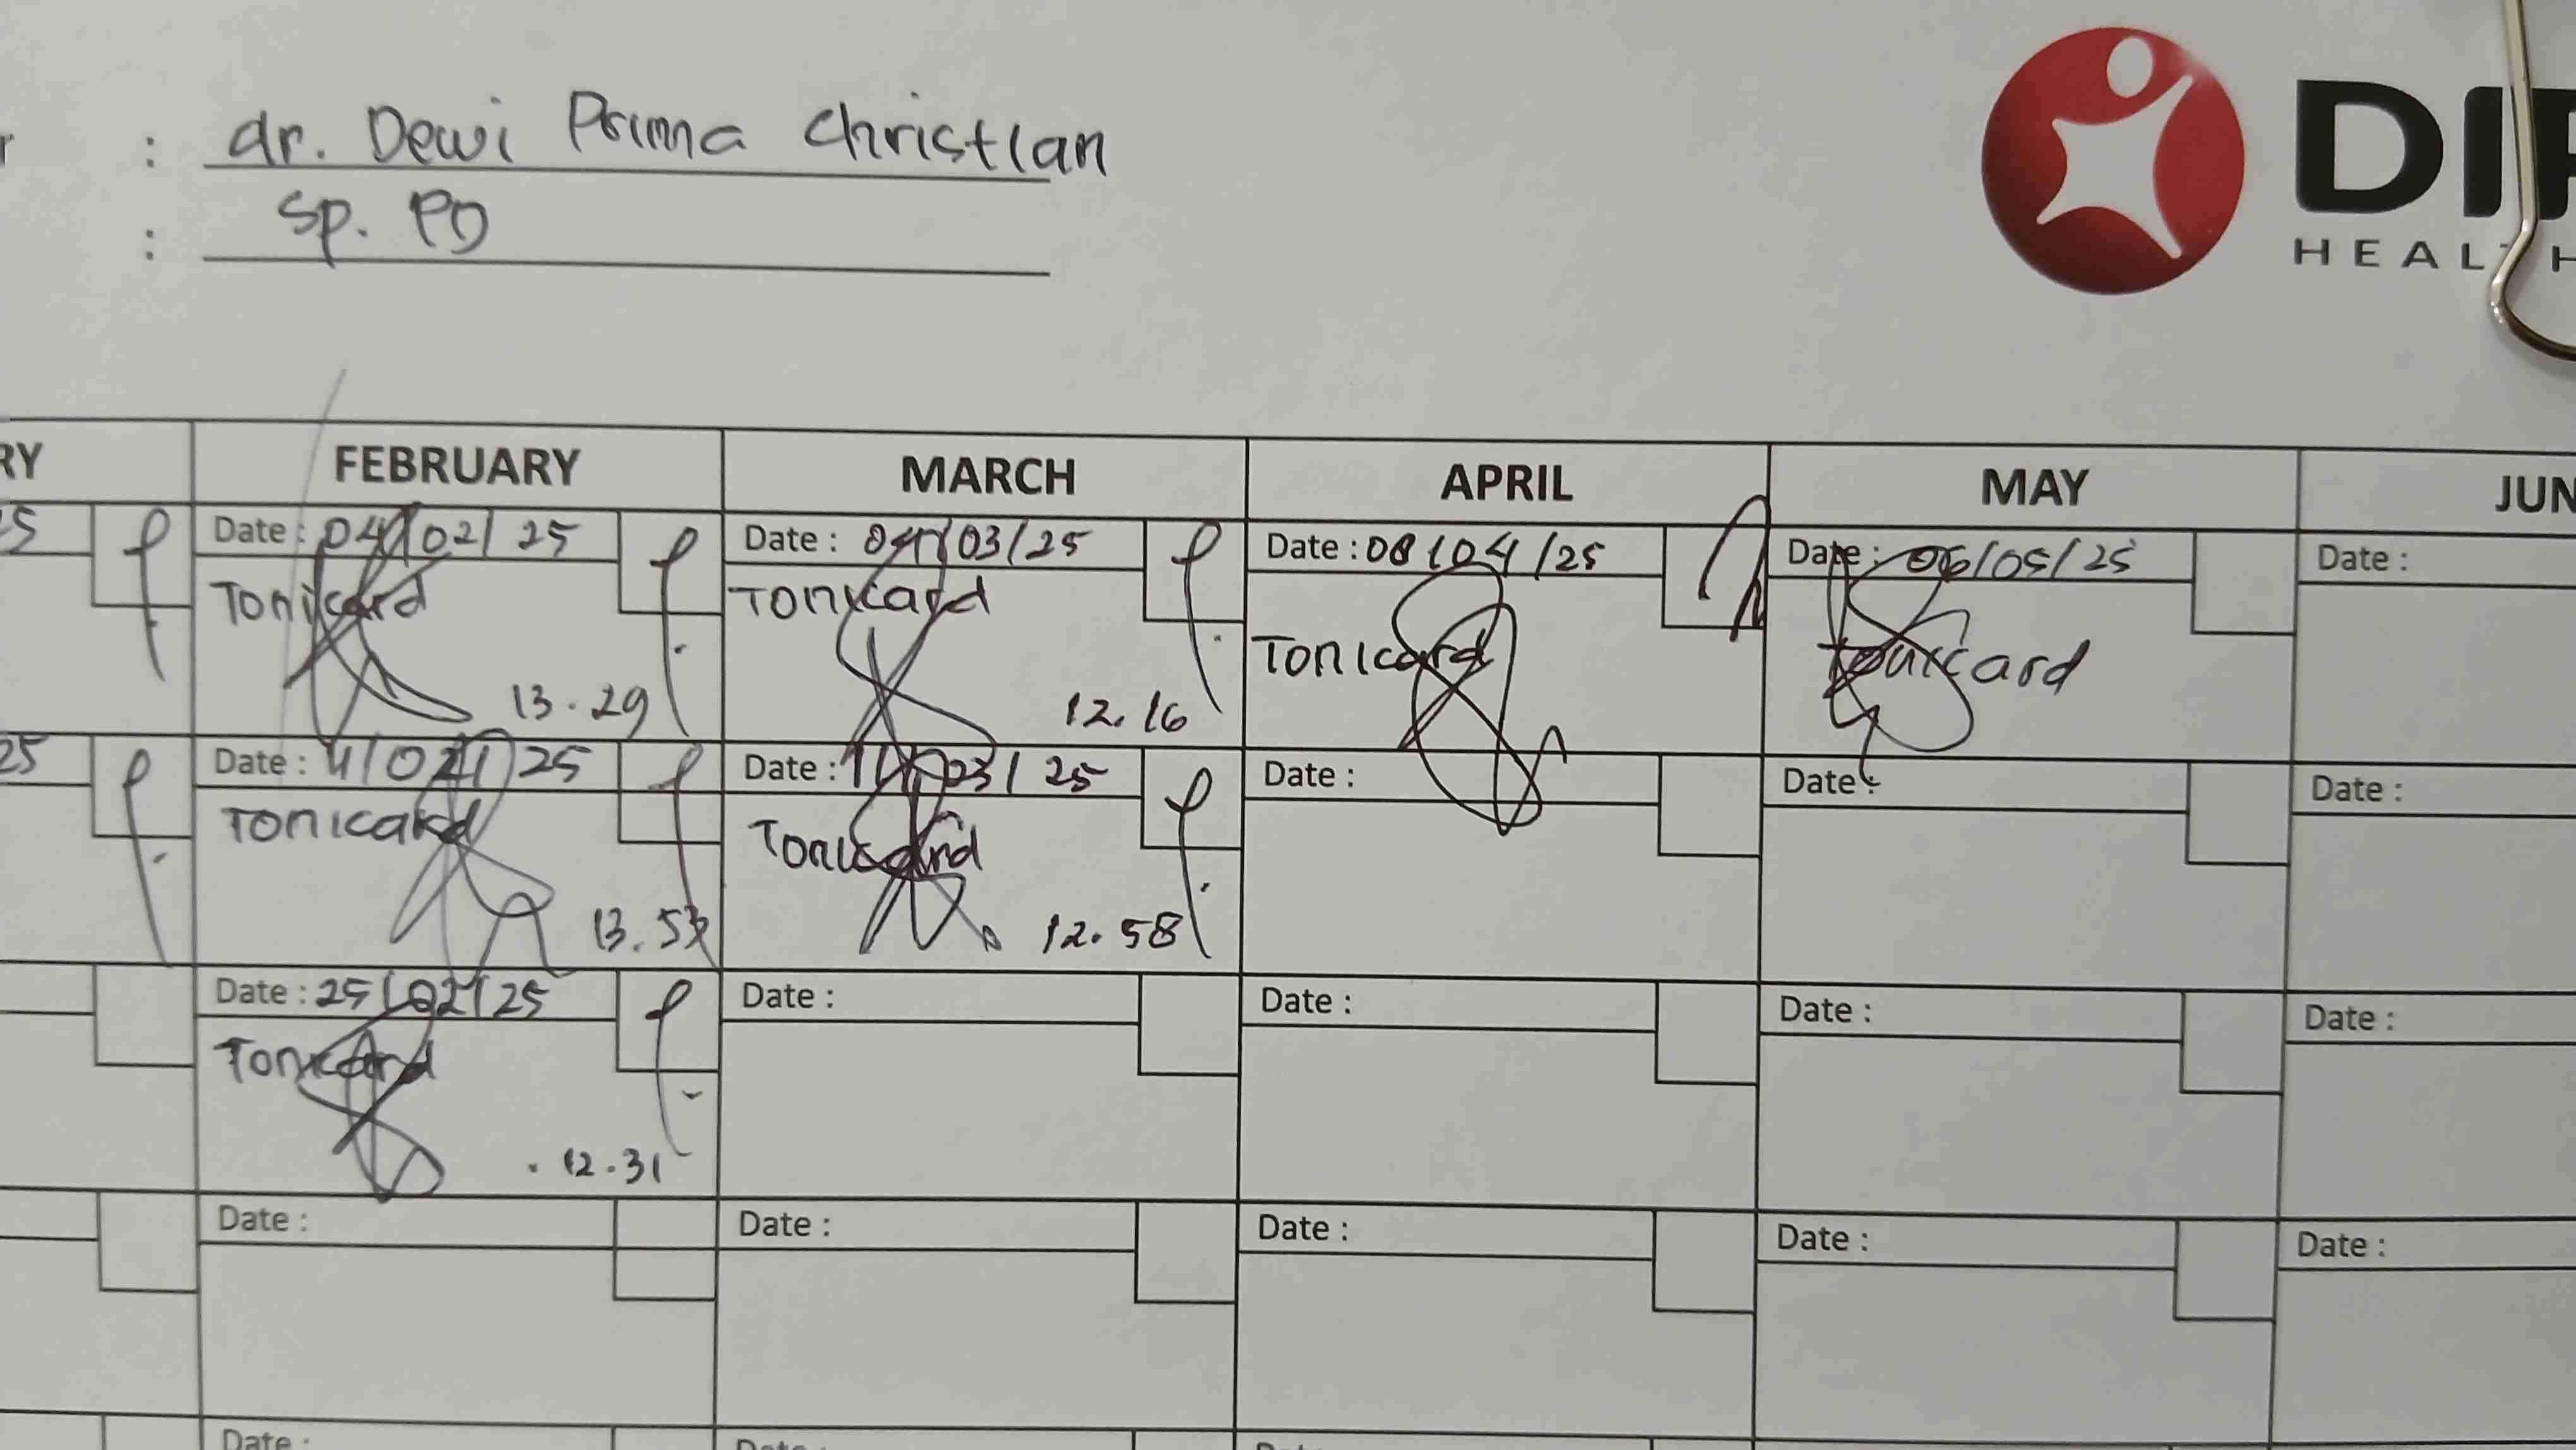 : dr. Dewi Prima Christian
: Sp. PD
HEALTH
FEBRUARY MARCH APRIL MAY JUN
25 Date : 04/02/25 Date : 04/03/25 Date : 08/04/25 Date : 06/05/25 Date :
Tonicard Tonicard Tonicard Tonicard
13.29 12.16
25 Date : 11/02/25 Date : 11/03/25 Date : Date : Date :
Tonicard Tonicard
13.53 12.58
Date : 25/02/25 Date : Date : Date : Date :
Tonicard
12.31
Date : Date : Date : Date : Date :
Date :